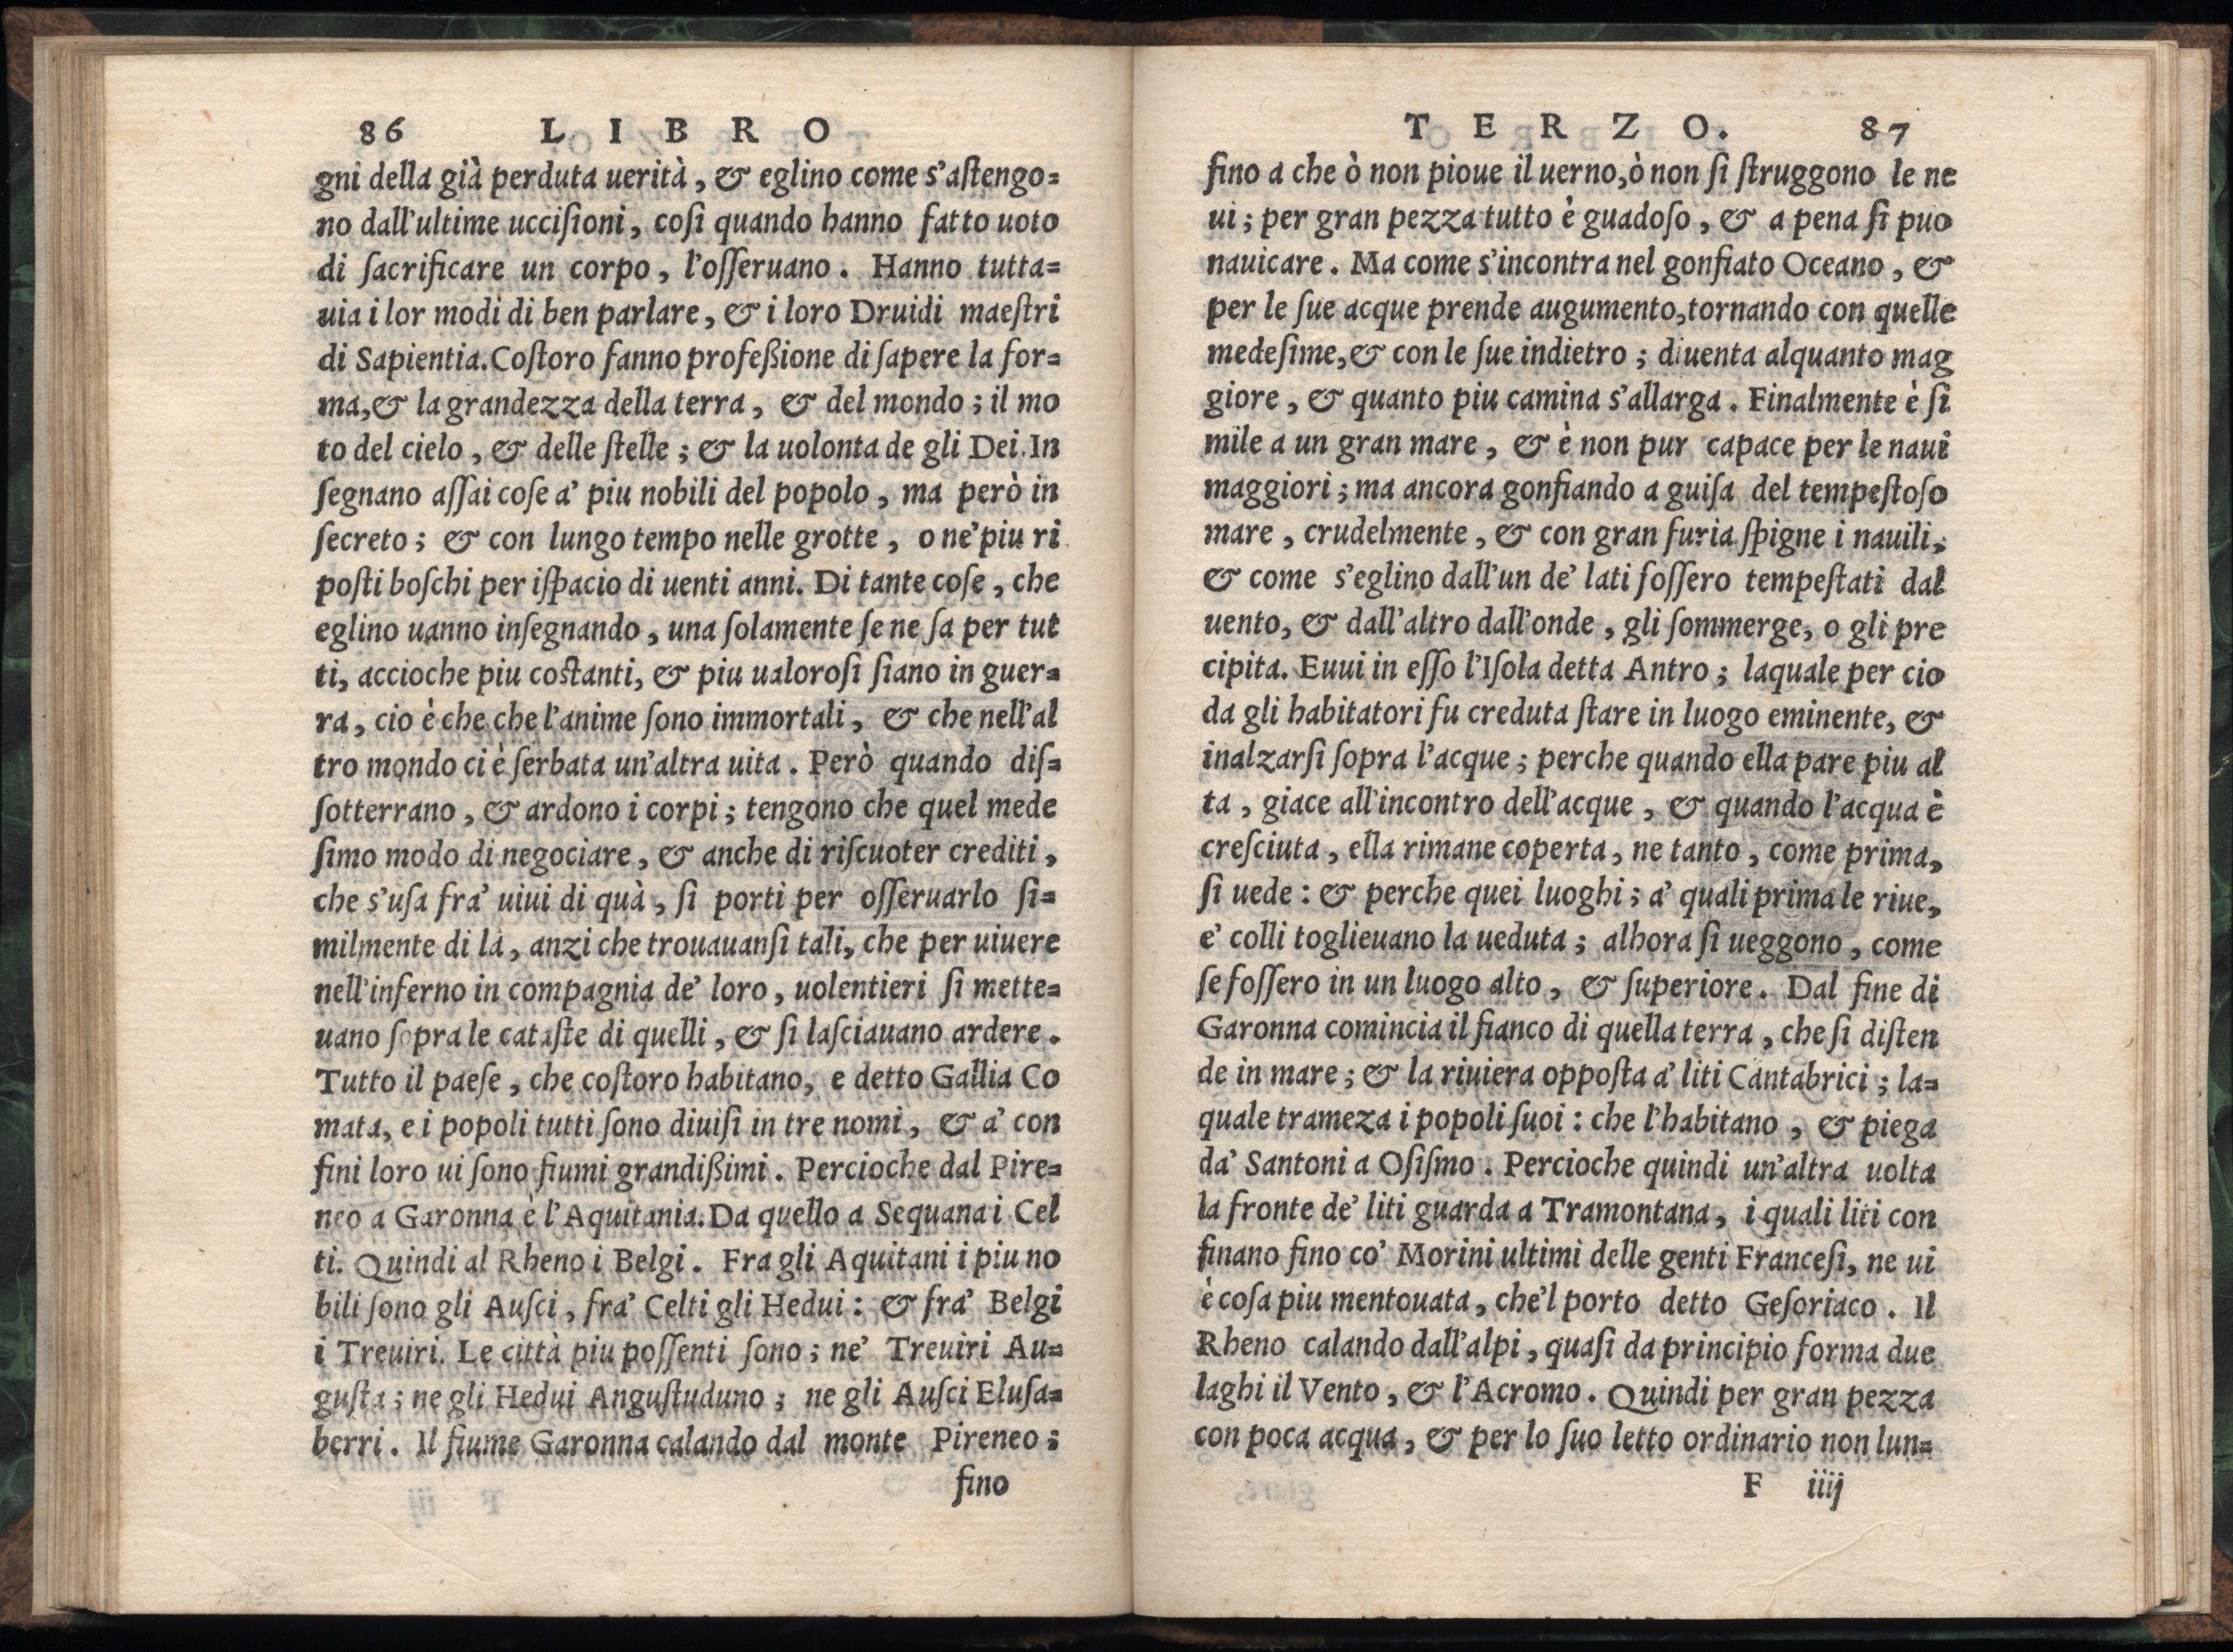 86 LIBRO
gni della già perduta uerità, & eglino come s'aſtengo=
no dall'ultime ucciſioni, coſi quando hanno fatto uoto
di ſacrificare un corpo, l'oſſeruano. Hanno tutta=
uia i lor modi di ben parlare, & i loro Druidi maeſtri
di Sapientia. Coſtoro fanno profeßione di ſapere la for=
ma, & la grandezza della terra, & del mondo; il mo
to del cielo, & delle ſtelle; & la uolonta de gli Dei. In
ſegnano aſſai coſe a' piu nobili del popolo, ma però in
ſecreto; & con lungo tempo nelle grotte, o ne' piu ri
poſti boſchi per iſpacio di uenti anni. Di tante coſe, che
eglino uanno inſegnando, una ſolamente ſe ne ſa per tut
ti, accioche piu coſtanti, & piu ualoroſi ſiano in guer=
ra, cio è che che l'anime ſono immortali, & che nell'al
tro mondo ci è ſerbata un'altra uita. Però quando diſ=
ſotterrano, & ardono i corpi; tengono che quel mede
ſimo modo di negociare, & anche di riſcuoter crediti,
che s'uſa fra' uiui di quà, ſi porti per oſſeruarlo ſi=
milmente di là, anzi che trouauanſi tali, che per uiuere
nell'inferno in compagnia de' loro, uolentieri ſi mette=
uano ſopra le cataſte di quelli, & ſi laſciauano ardere.
Tutto il paeſe, che coſtoro habitano, e detto Gallia Co
mata, e i popoli tutti ſono diuiſi in tre nomi, & a' con
fini loro ui ſono fiumi grandißimi. Percioche dal Pire=
neo a Garonna è l'Aquitania. Da quello a Sequana i Cel
ti. Quindi al Rheno i Belgi. Fra gli Aquitani i piu no
bili ſono gli Auſci, fra' Celti gli Hedui: & fra' Belgi
i Treuiri. Le città piu poſſenti ſono; ne' Treuiri Au=
guſta; ne gli Hedui Anguſtuduno; ne gli Auſci Eluſa=
berri. Il fiume Garonna calando dal monte Pireneo;
fino
TERZO. 87
fino a che ò non pioue il uerno, ò non ſi ſtruggono le ne
ui; per gran pezza tutto è guadoſo, & a pena ſi puo
nauicare. Ma come s'incontra nel gonfiato Oceano, &
per le ſue acque prende augumento, tornando con quelle
medeſime, & con le ſue indietro; diuenta alquanto mag
giore, & quanto piu camina s'allarga. Finalmente è ſi
mile a un gran mare, & è non pur capace per le naui
maggiori; ma ancora gonfiando a guiſa del tempeſtoſo
mare, crudelmente, & con gran furia ſpigne i nauili,
& come s'eglino dall'un de' lati foſſero tempeſtati dal
uento, & dall'altro dall'onde, gli ſommerge, o gli pre
cipita. Euui in eſſo l'Iſola detta Antro; laquale per cio
da gli habitatori fu creduta ſtare in luogo eminente, &
inalzarſi ſopra l'acque; perche quando ella pare piu al
ta, giace all'incontro dell'acque, & quando l'acqua è
creſciuta, ella rimane coperta, ne tanto, come prima,
ſi uede: & perche quei luoghi; a' quali prima le riue,
e' colli toglieuano la ueduta; alhora ſi ueggono, come
ſe foſſero in un luogo alto, & ſuperiore. Dal fine di
Garonna comincia il fianco di quella terra, che ſi diſten
de in mare; & la riuiera oppoſta a' liti Cantabrici; la=
quale trameza i popoli ſuoi: che l'habitano, & piega
da' Santoni a Oſiſmo. Percioche quindi un'altra uolta
la fronte de' liti guarda a Tramontana, i quali liti con
finano fino co' Morini ultimi delle genti Franceſi, ne ui
è coſa piu mentouata, che'l porto detto Geſoriaco. Il
Rheno calando dall'alpi, quaſi da principio forma due
laghi il Vento, & l'Acromo. Quindi per gran pezza
con poca acqua, & per lo ſuo letto ordinario non lun=
F iiij